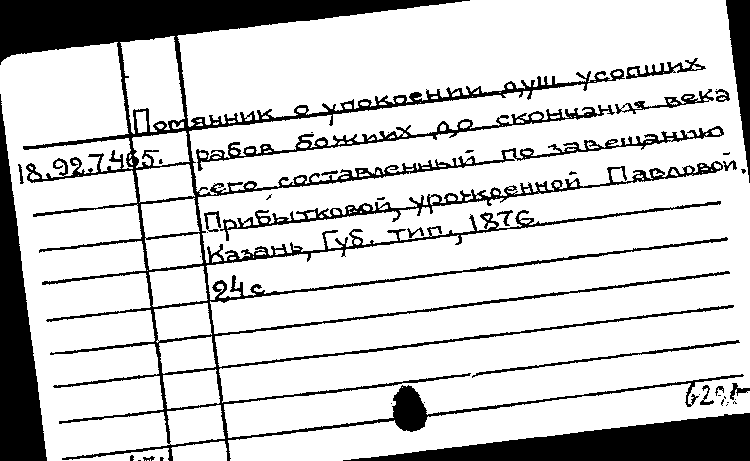 Помянник о упокоении душ усопших
18.92.7.465. рабов божиих до скончания века
сего составленный по завещанию
Прибытковой, урожденной Павловой.
Казань, Губ. тип., 1876.
24 с.